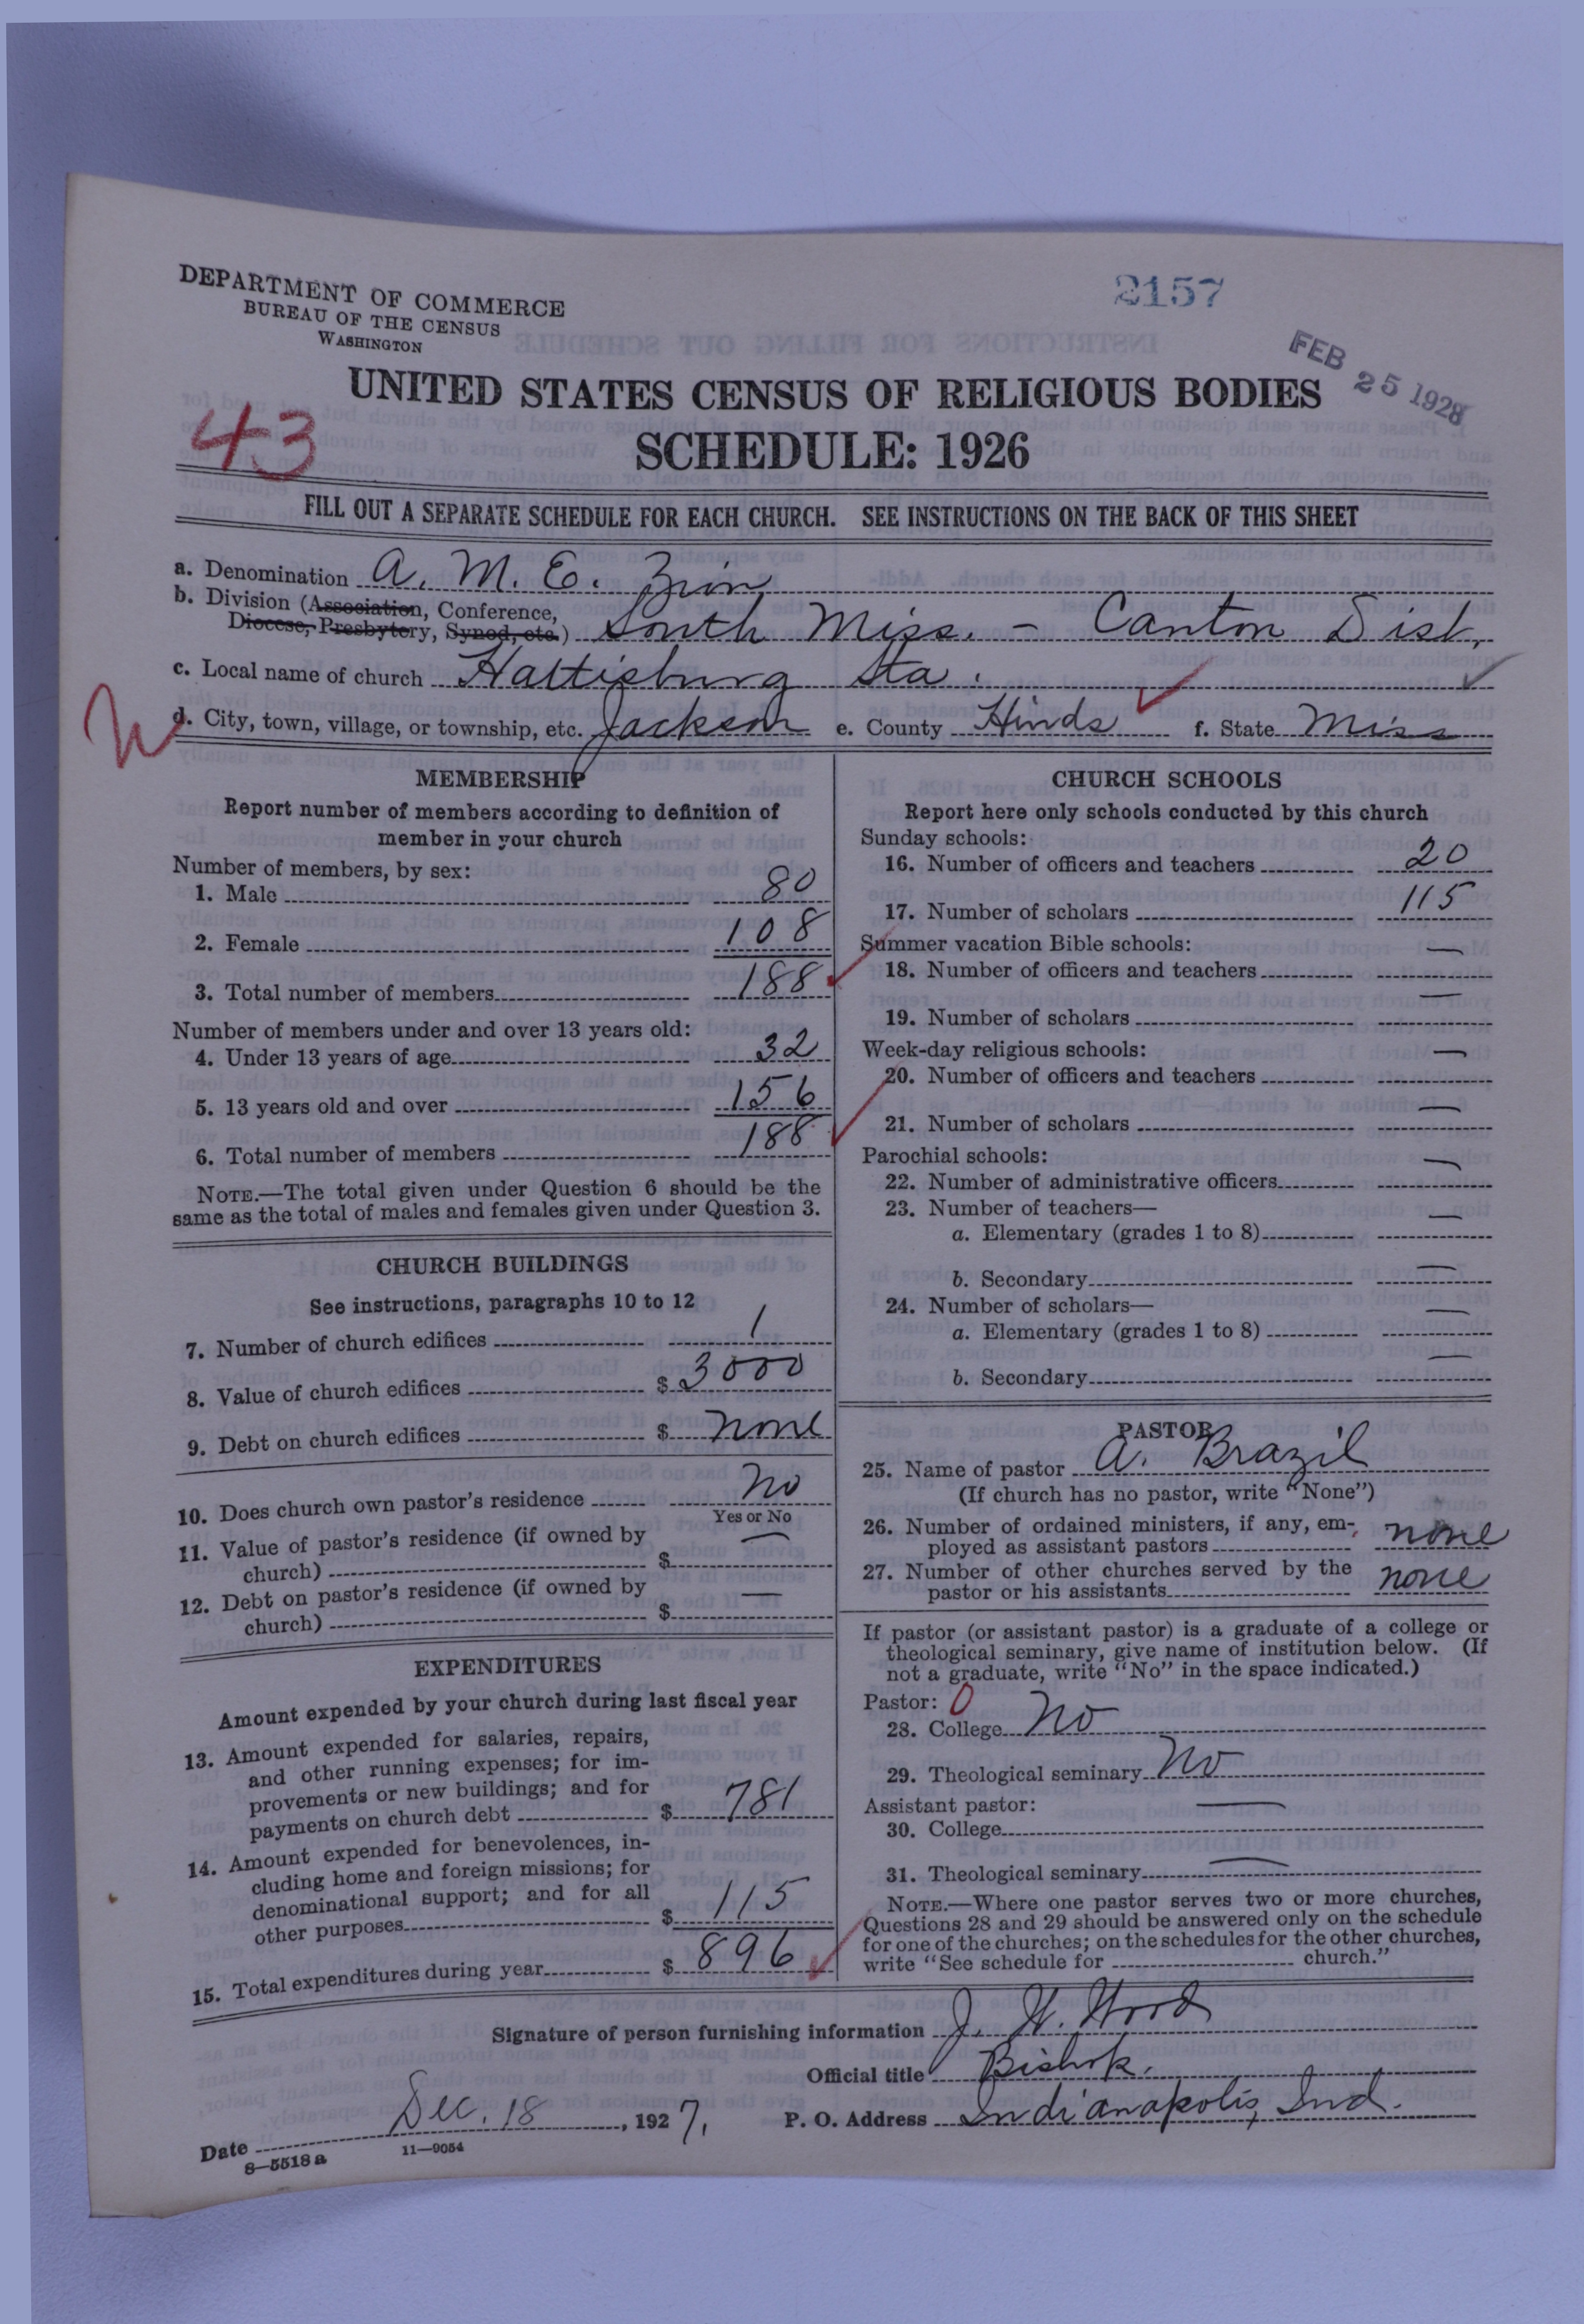 DEPARTMENT OF COMMERCE
BUREAU OF THE CENSUS
WASHINGTON
2157
FEB 25 1928
UNITED STATES CENSUS OF RELIGIOUS BODIES
SCHEDULE: 1926
43
FILL OUT A SEPARATE SCHEDULE FOR EACH CHURCH. SEE INSTRUCTIONS ON THE BACK OF THIS SHEET
a. Denomination A. M. E. Zion
b. Division (Association, Conference,
Diocese, Presbytery, Synod, etc.) South Miss. - Canton Dist.
c. Local name of church Hattisburg Sta.
d. City, town, village, or township, etc. Jackson e. County Hinds f. State Miss
MEMBERSHIP
Report number of members according to definition of
member in your church
Number of members, by sex:
1. Male 80
2. Female 108
3. Total number of members 188
Number of members under and over 13 years old:
4. Under 13 years of age 32
5. 13 years old and over 156
6. Total number of members 188
NOTE.—The total given under Question 6 should be the
same as the total of males and females given under Question 3.
CHURCH BUILDINGS
See instructions, paragraphs 10 to 12
7. Number of church edifices 1
8. Value of church edifices $ 3000
9. Debt on church edifices $ none
10. Does church own pastor's residence No
Yes or No
11. Value of pastor's residence (if owned by
church) $ —
12. Debt on pastor's residence (if owned by
church) $ —
EXPENDITURES
Amount expended by your church during last fiscal year
13. Amount expended for salaries, repairs,
and other running expenses; for im-
provements or new buildings; and for
payments on church debt $ 781
14. Amount expended for benevolences, in-
cluding home and foreign missions; for
denominational support; and for all
other purposes $ 115
15. Total expenditures during year $ 896
CHURCH SCHOOLS
Report here only schools conducted by this church
Sunday schools:
16. Number of officers and teachers 20
17. Number of scholars 115
Summer vacation Bible schools:
18. Number of officers and teachers —
19. Number of scholars —
Week-day religious schools:
20. Number of officers and teachers —
21. Number of scholars —
Parochial schools:
22. Number of administrative officers —
23. Number of teachers—
a. Elementary (grades 1 to 8) —
b. Secondary —
24. Number of scholars—
a. Elementary (grades 1 to 8) —
b. Secondary —
PASTOR
25. Name of pastor A. Brazil
(If church has no pastor, write "None")
26. Number of ordained ministers, if any, em-
ployed as assistant pastors none
27. Number of other churches served by the
pastor or his assistants none
If pastor (or assistant pastor) is a graduate of a college or
theological seminary, give name of institution below. (If
not a graduate, write "No" in the space indicated.)
Pastor: 0
28. College No
29. Theological seminary No
Assistant pastor:
30. College —
31. Theological seminary —
NOTE.—Where one pastor serves two or more churches,
Questions 28 and 29 should be answered only on the schedule
for one of the churches; on the schedules for the other churches,
write "See schedule for church."
Signature of person furnishing information J. W. Wood
Official title Bishop.
Date Dec. 18, 1927. P. O. Address Indianapolis, Ind.
8—5518a 11—9054